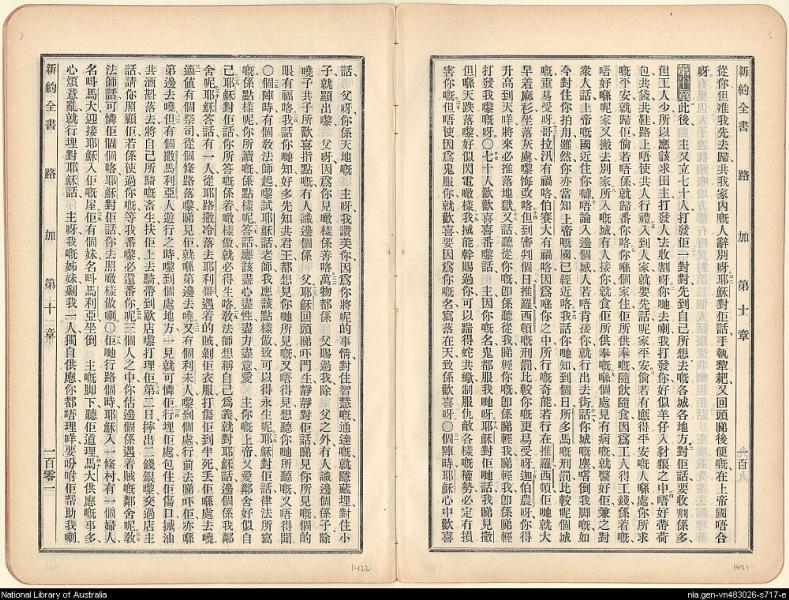 新約全書 路加 第十章 一百
從你但准我先去歸共我家內嘅人辭別呀耶穌對佢話手執犂耙又回頭睇後便嘅在上帝國唔合
呀
第十章 此後主又立七十人打發佢一對對先到自己所想去嘅各城各地方對佢話要收割係多
但工人少所以應該求田主打發人去收割呀你哋去喇我打發你好似羊仔入豺狼之中唔好帶荷
包共袋共鞋路上唔使共人行禮入到人家就要先話呢家平安倘若有應得平安嘅人喺處你所求
嘅平安就歸佢倘若唔係就歸番你咯你喺個家住佢所供奉嘅隨飲隨食因爲工人得工錢係着嘅
唔好喺呢家又搬去別家所入嘅城有人接你就食佢所供奉嘅喺個處見有病嘅就醫好佢兼之對
衆人話上帝嘅國近住你嚹唔論入邊個城人若唔肯接你就行出去街話你城嘅塵倒我脚嘅如
今對住你拍甩雖然你亦當知上帝嘅國已經近咯我話你哋知到個日所多馬嘅刑罰比較呢個城
嘅重易受呀哥拉汛有禍咯伯賽大有禍咯因爲喺你之中所行嘅奇能若行在推羅西頓佢哋就大
早着麻衫坐落灰處嚟悔改咯但到審判個日推羅西頓嘅刑罰比較你嘅更易受呀迦伯農呀你得
升高到天咩將來必推落地獄又話聽從你嘅卽係聽從我睇輕你嘅卽係睇輕我睇輕我卽係睇輕
打發我嚟嘅呀○七十人歡歡喜喜番嚟話主因你嘅名鬼都服我哋呀耶穌對佢哋話我睇見撒
但喺天跌落嚟好似閃電噉樣我能幹賜過你可以踹得蛇共蠍制服仇敵各樣嘅權勢必定冇損
害你嘅但唔使因爲鬼服你就歡喜要因爲你嘅名寫落在天致係歡喜呀○個陣時耶穌心中歡喜
話父呀你係天地嘅主呀我讚美你因爲你將呢的事情對住智慧嘅通達嘅就隱藏埋對住小
子就顯出嚟父呀因爲你見噉樣係善咯萬物都係父賜過我除父之外冇人識邊個係子除
嘵子共子所歡喜指點嘅冇人識邊個係父耶穌回頭睇吓門生靜靜對佢話睇見你所見嘅個的
眼有福咯我話你哋知好多先知共君王都想見你哋所見嘅又唔得見想聽你哋所聽嘅又唔得聞
○個陣時有個敎法師起嚟試耶穌話老師我應該點樣做致可以得永生呢耶穌對佢話律法所寫
嘅係點樣呢你所讀嘅係點樣呢佢答話應該盡心盡性盡力盡意愛主你嘅上帝又愛鄰舍好似自
己耶穌對佢話你所答嘅係着噉樣做就必得生咯敎法師想稱自己爲義就對耶穌話邊個係我鄰
舍呢耶穌答話有一人從耶路撒冷落去耶利哥遇着的賊剝佢衣服打傷佢到半死丟佢喺處去嘵
適值有個祭司從個條路落嚟睇見佢就喺第邊去嘵又有個利未人嚟到個處行前去睇吓佢亦喺
第邊去嘵但有個撒馬利亞人遊行之時嚟到個處地方一見就可憐佢行埋佢處包住佢傷口搣油
共酒斟落去將自己所騎嘅畜生扶佢上去騎帶到歇店嚟打理佢第二日拎出二錢銀嚟交過店主
話請你照顧佢若係使過你嘅等我番嚟必還番你呢三個人之中你估邊個係遇着賊嘅鄰舍呢敎
法師話可憐佢個個咯耶穌對佢話你去照噉樣做喇○佢哋行路個時耶穌入一條村有一個婦人
名呌馬大迎接耶穌入佢嘅屋佢有個妹名呌馬利亞坐倒主嘅脚下聽佢道理馬大供應嘅事多
心煩意亂就行埋對耶穌話主呀我嘅姊妹剩我一人獨自供應你都唔理咩要吩咐佢帮助我喇
新約全書 路加 第十章 一百零一
1422
1421
National Library of Australia
nla.gen-vn483026-s717-e